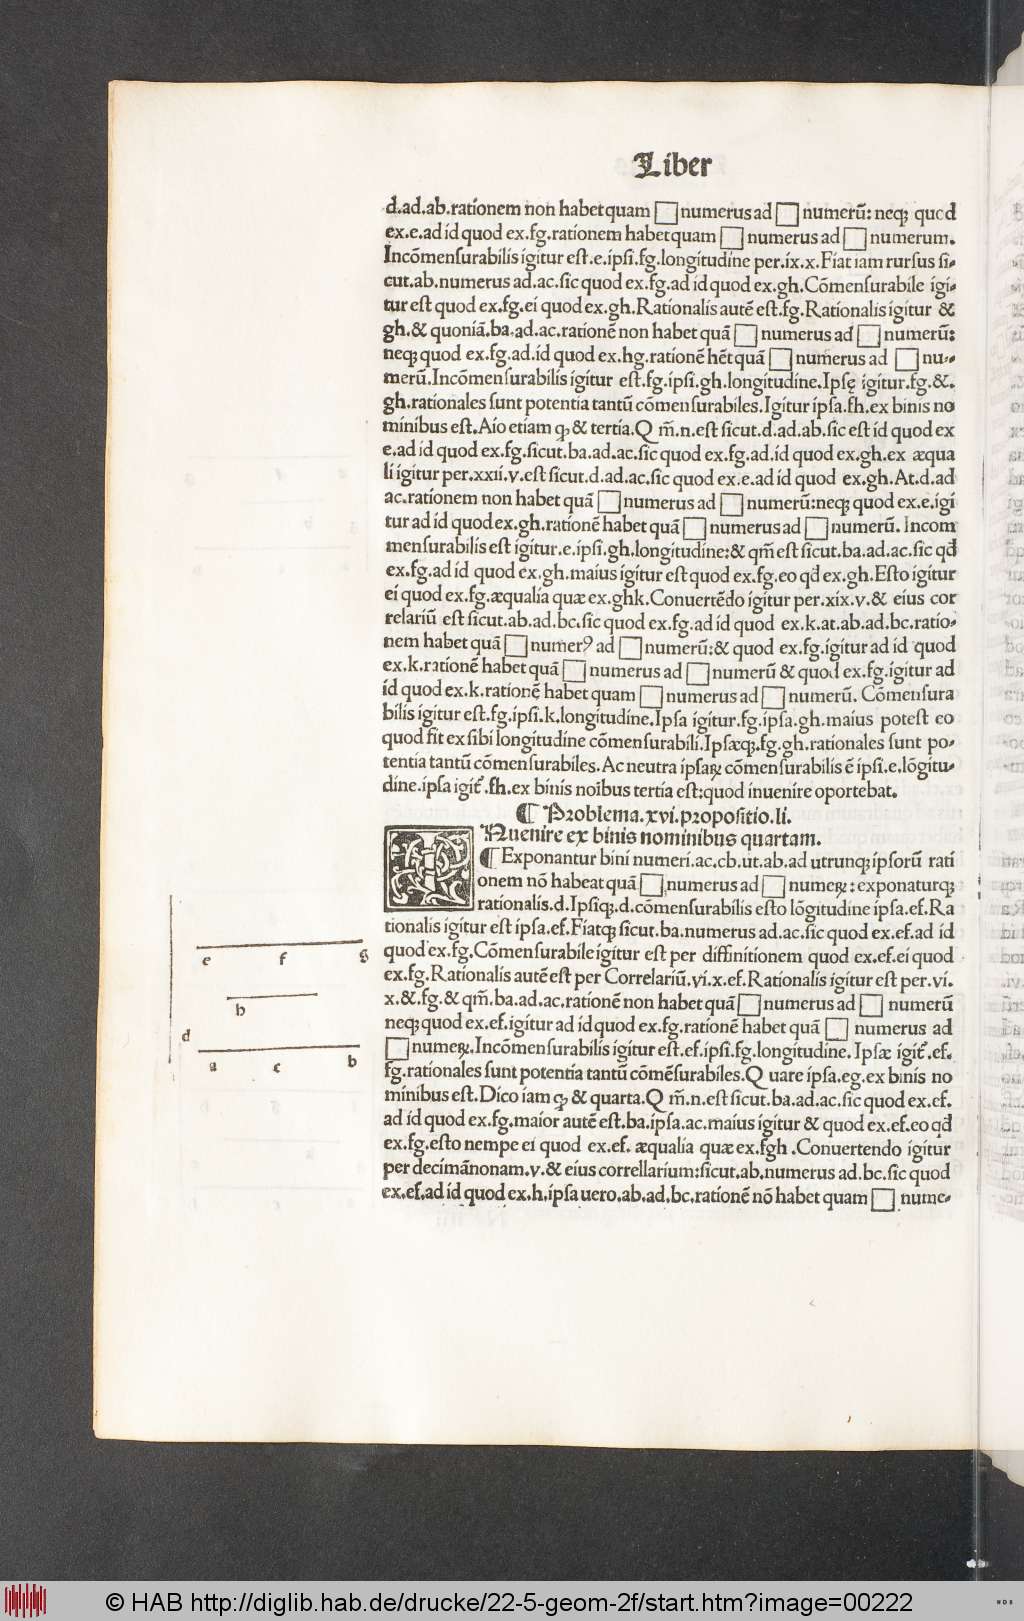 Liber
d.ad.ab.rationem non habet quam □ numerus ad □ numerū: neqꝫ quod
ex.e.ad id quod ex.fg.rationem habet quam □ numerus ad □ numerum.
Incōmensurabilis igitur est.e.ipsi.fg.longitudine per.ix.x.Fiat iam rursus si-
cut.ab.numerus ad.ac.sic quod ex.fg.ad id quod ex.gh.Cōmensurabile igi-
tur est quod ex.fg.ei quod ex.gh.Rationalis autē est.fg.Rationalis igitur &
gh.& quoniā.ba.ad.ac.rationē non habet quā □ numerus ad □ numerū:
neqꝫ quod ex.fg.ad.id quod ex.hg.rationē hēt quā □ numerus ad □ nu-
merū.Incōmensurabilis igitur est.fg.ipsi.gh.longitudine.Ipsę igitur.fg.&.
gh.rationales sunt potentia tantū cōmensurabiles.Igitur ipsa.fh.ex binis no
minibus est.Aio etiam ꝙ & tertia.Q m̄.n.est sicut.d.ad.ab.sic est id quod ex
e.ad id quod ex.fg.sicut.ba.ad.ac.sic quod ex.fg.ad.id quod ex.gh.ex æqua
li igitur per.xxii.v.est sicut.d.ad.ac.sic quod ex.e.ad id quod ex.gh.At.d.ad
ac.rationem non habet quā □ numerus ad □ numerū:neqꝫ quod ex.e.igi
tur ad id quod ex.gh.rationē habet quā □ numerus ad □ numerū. Incom
mensurabilis est igitur.e.ipsi.gh.longitudine:& qm̄ est sicut.ba.ad.ac.sic qđ
ex.fg.ad id quod ex.gh.maius igitur est quod ex.fg.eo qđ ex.gh.Esto igitur
ei quod ex.fg.æqualia quæ ex.ghk.Conuertēdo igitur per.xix.v.& eius cor
relariū est sicut.ab.ad.bc.sic quod ex.fg.ad id quod ex.k.at.ab.ad.bc.ratio-
nem habet quā □ numerꝰ ad □ numerū:& quod ex.fg.igitur ad id quod
ex.k.rationē habet quā □ numerus ad □ numerū & quod ex.fg.igitur ad
id quod ex.k.rationē habet quam □ numerus ad □ numerū. Cōmensura
bilis igitur est.fg.ipsi.k.longitudine.Ipsa igitur.fg.ipsa.gh.maius potest eo
quod fit ex sibi longitudine cōmensurabili.Ipsæqꝫ.fg.gh.rationales sunt po-
tentia tantū cōmensurabiles.Ac neutra ipsaꝝ cōmensurabilis ē ipsi.e.lōgitu-
dine.ipsa igit̃.fh.ex binis noībus tertia est:quod inuenire oportebat.
¶ Problema.xvi.propositio.li.
INuenire ex binis nominibus quartam.
¶Exponantur bini numeri.ac.cb.ut.ab.ad utrunqꝫ ipsorū rati
onem nō habeat quā □ numerus ad □ numeꝝ: exponaturqꝫ
rationalis.d.Ipsiqꝫ.d.cōmensurabilis esto lōgitudine ipsa.ef.Ra
tionalis igitur est ipsa.ef.Fiatqꝫ sicut.ba.numerus ad.ac.sic quod ex.ef.ad id
quod ex.fg.Cōmensurabile igitur est per diffinitionem quod ex.ef.ei quod
ex.fg.Rationalis autē est per Correlariū.vi.x.ef.Rationalis igitur est per.vi.
x.&.fg.& qm̄.ba.ad.ac.rationē non habet quā □ numerus ad □ numerū
neqꝫ quod ex.ef.igitur ad id quod ex.fg.rationē habet quā □ numerus ad
□ numeꝝ.Incōmensurabilis igitur est.ef.ipsi.fg.longitudine. Ipsæ igit̃.ef.
fg.rationales sunt potentia tantū cōmēsurabiles.Q uare ipsa.eg.ex binis no
minibus est.Dico iam ꝙ & quarta.Q m̄.n.est sicut.ba.ad.ac.sic quod ex.ef.
ad id quod ex.fg.maior autē est.ba.ipsa.ac.maius igitur & quod ex.ef.eo qđ
ex.fg.esto nempe ei quod ex.ef. æqualia quæ ex.fgh.Conuertendo igitur
per decimānonam.v.& eius correllarium:sicut.ab.numerus ad.bc.sic quod
ex.ef.ad id quod ex.h.ipsa uero.ab.ad.bc.rationē nō habet quam □ nume-
e f g
h
d
a c b
© HAB http://diglib.hab.de/drucke/22-5-geom-2f/start.htm?image=00222